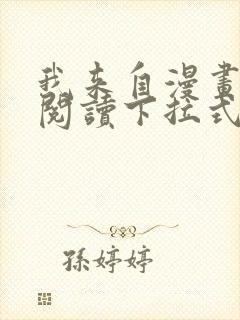 我来自漫畫
閱讀下拉式
孫婷婷